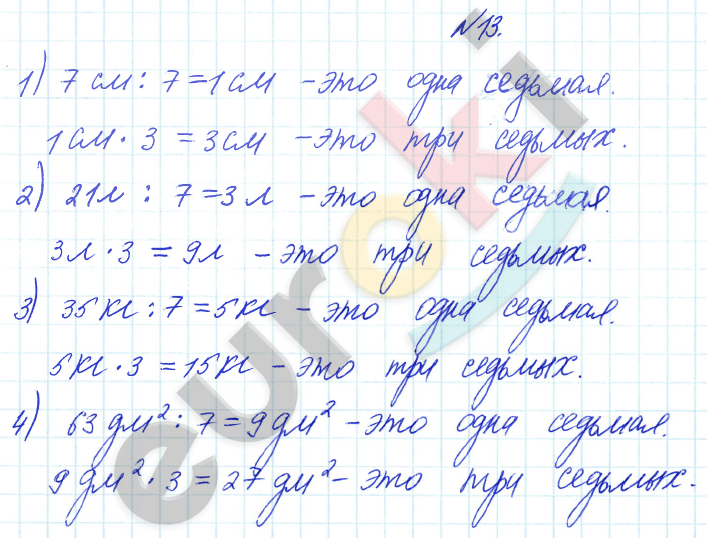 №13.
1) 7 см : 7 = 1 см - это одна седьмая.
1 см · 3 = 3 см - это три седьмых.
2) 21 л : 7 = 3 л - это одна седьмая.
3 л · 3 = 9 л - это три седьмых.
3) 35 кг : 7 = 5 кг - это одна седьмая.
5 кг · 3 = 15 кг - это три седьмых.
4) 63 дм² : 7 = 9 дм² - это одна седьмая.
9 дм² · 3 = 27 дм² - это три седьмых.
euroki